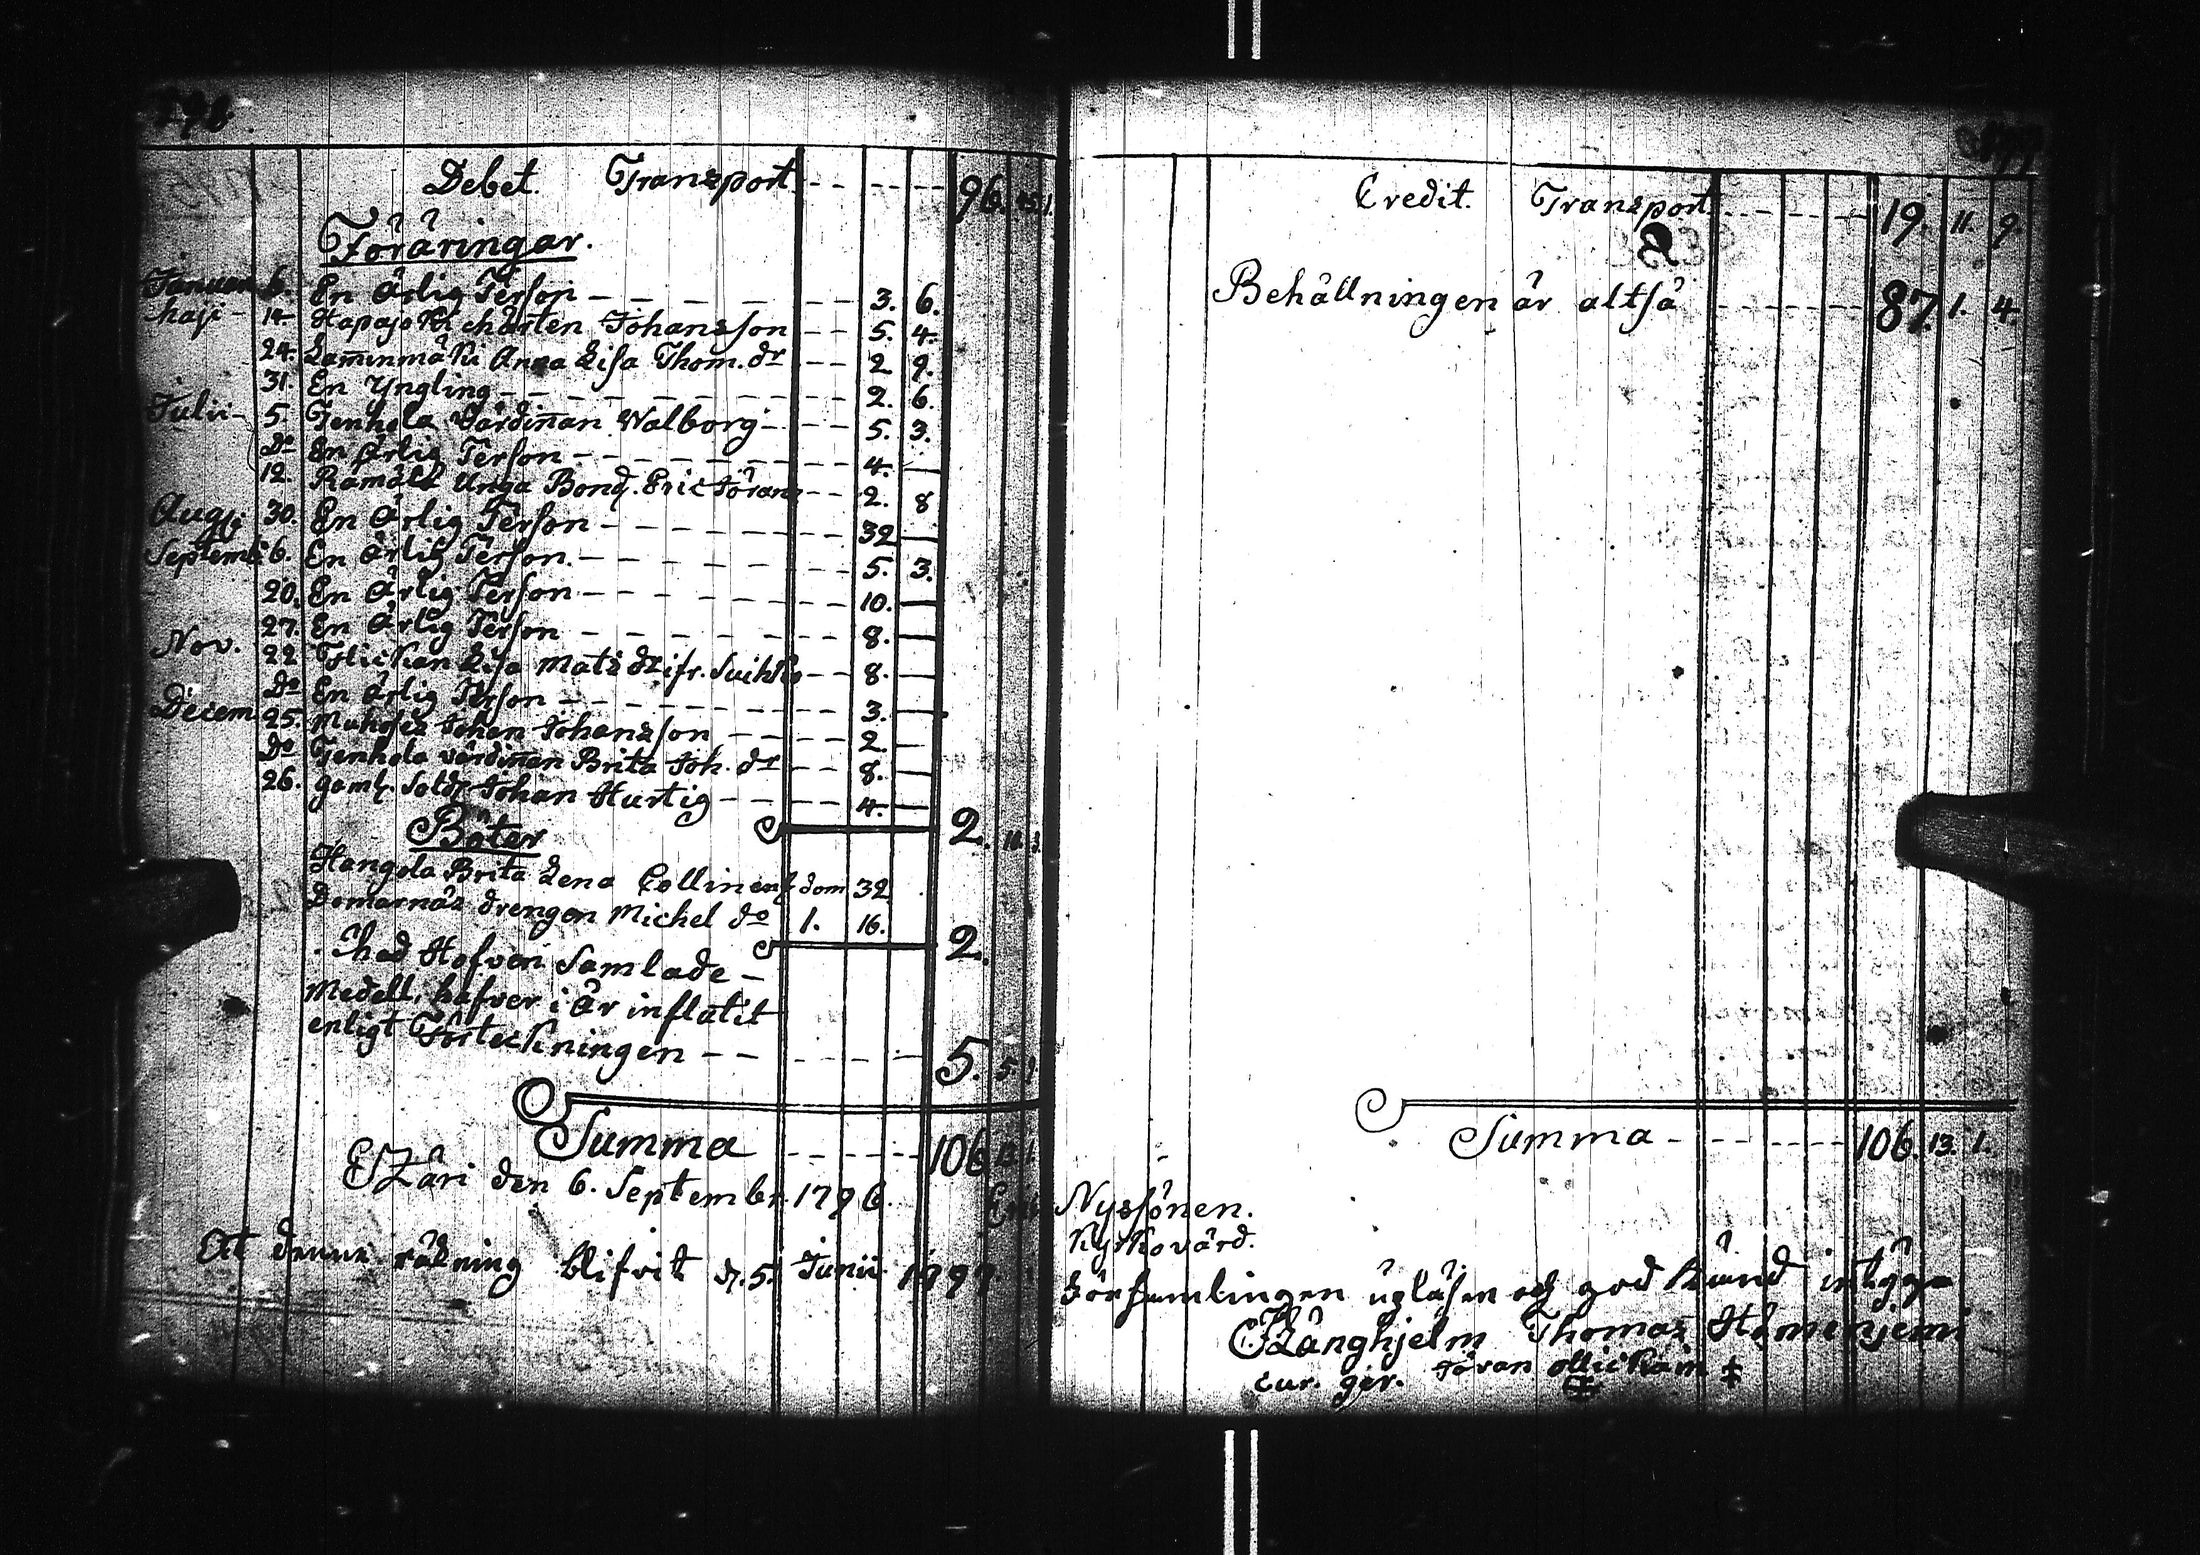 Debet. Transport. 96. 15. 1.
Föräringar.
Januari 6. En Ärlig Person 3. 6.
Maji 14. Hapajoki Mårten Johansson 5. 4.
24. Lamminmäki Anna Lisa Thom. dr 2 9.
31. En Yngling 2. 6.
Julii 5. Tenhola Värdinnan Walborg 5. 3.
Do En Ärlig Person 4. —
12. Unga Bond. Eric Jöranss 2. 8
Augsti 30. En Ärlig Person 32 —
Septemb. 6. En Ärlig Person. 5. 3.
20. En Ärlig Person 10. —
27. En Ärlig Person 8. —
Nov. 22 Flickan Lisa Mats dr ifr. Suihko 8. —
Do En Ärlig Person 3. —
Decem 25. Johan Johansson 2. —
Do Tenhola värdinnan Brita Joh. dr 8. —
26. gaml. Sold. Johan Hurtig 4. —
2.
Böter
Hangola Brita Lena Collinens dom 32
Domarnäs drengen Michel do 1. 16.
2.
Med Hofven Samlade
Medell, hafver i år inflütit
enligt Förteckningen 5. 5. 1
Summa 106 13 1.
Etzäri den 6. Septembr. 1796.
At denna räkning blifvit d. 5. Junii 1797
Credit. Transport. 19. 11. 9.
Behållningen är altså 87. 1. 4.
Summa 106. 13. 1.
Eric Nyssönen.
Kyrkovärd.
Församlingen upläsen och god känd intyga
Långhjelm Thomas Hömönjemi
cur. ger. Jöran Ollickain ‡